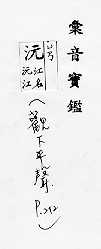 彙音寶鑑
沅
江名
沅江
(觀下平聲)
P.212